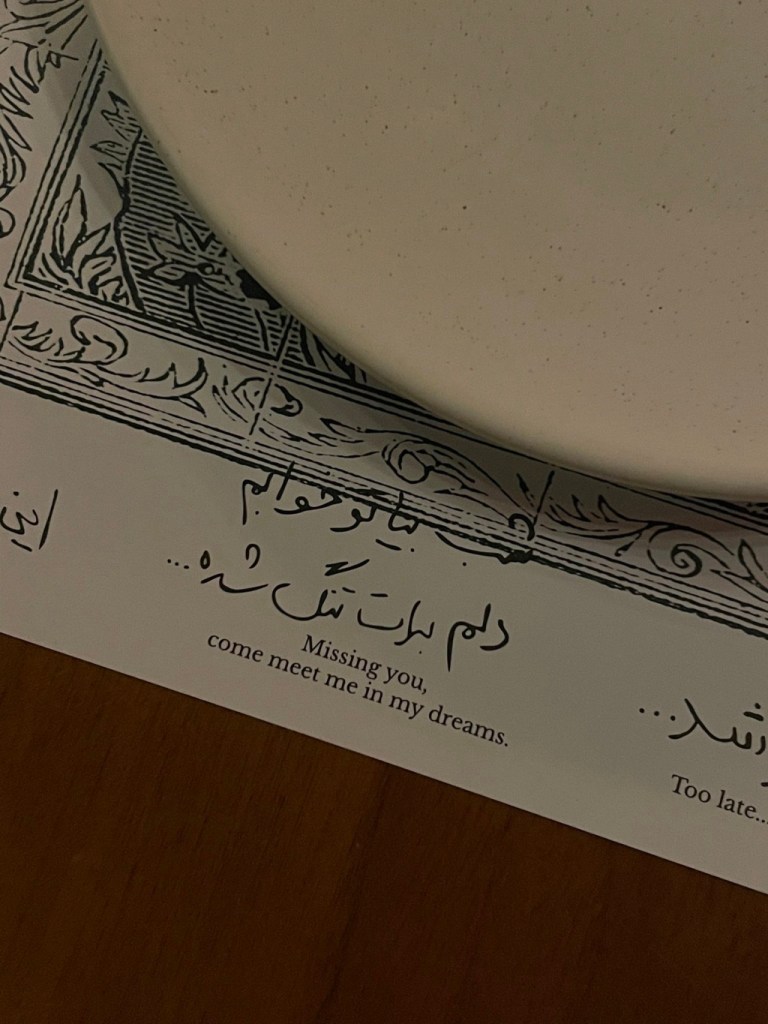 شب بیا تو خوابم
دلم برات تنگ شده...
Missing you,
come meet me in my dreams.
Too late...